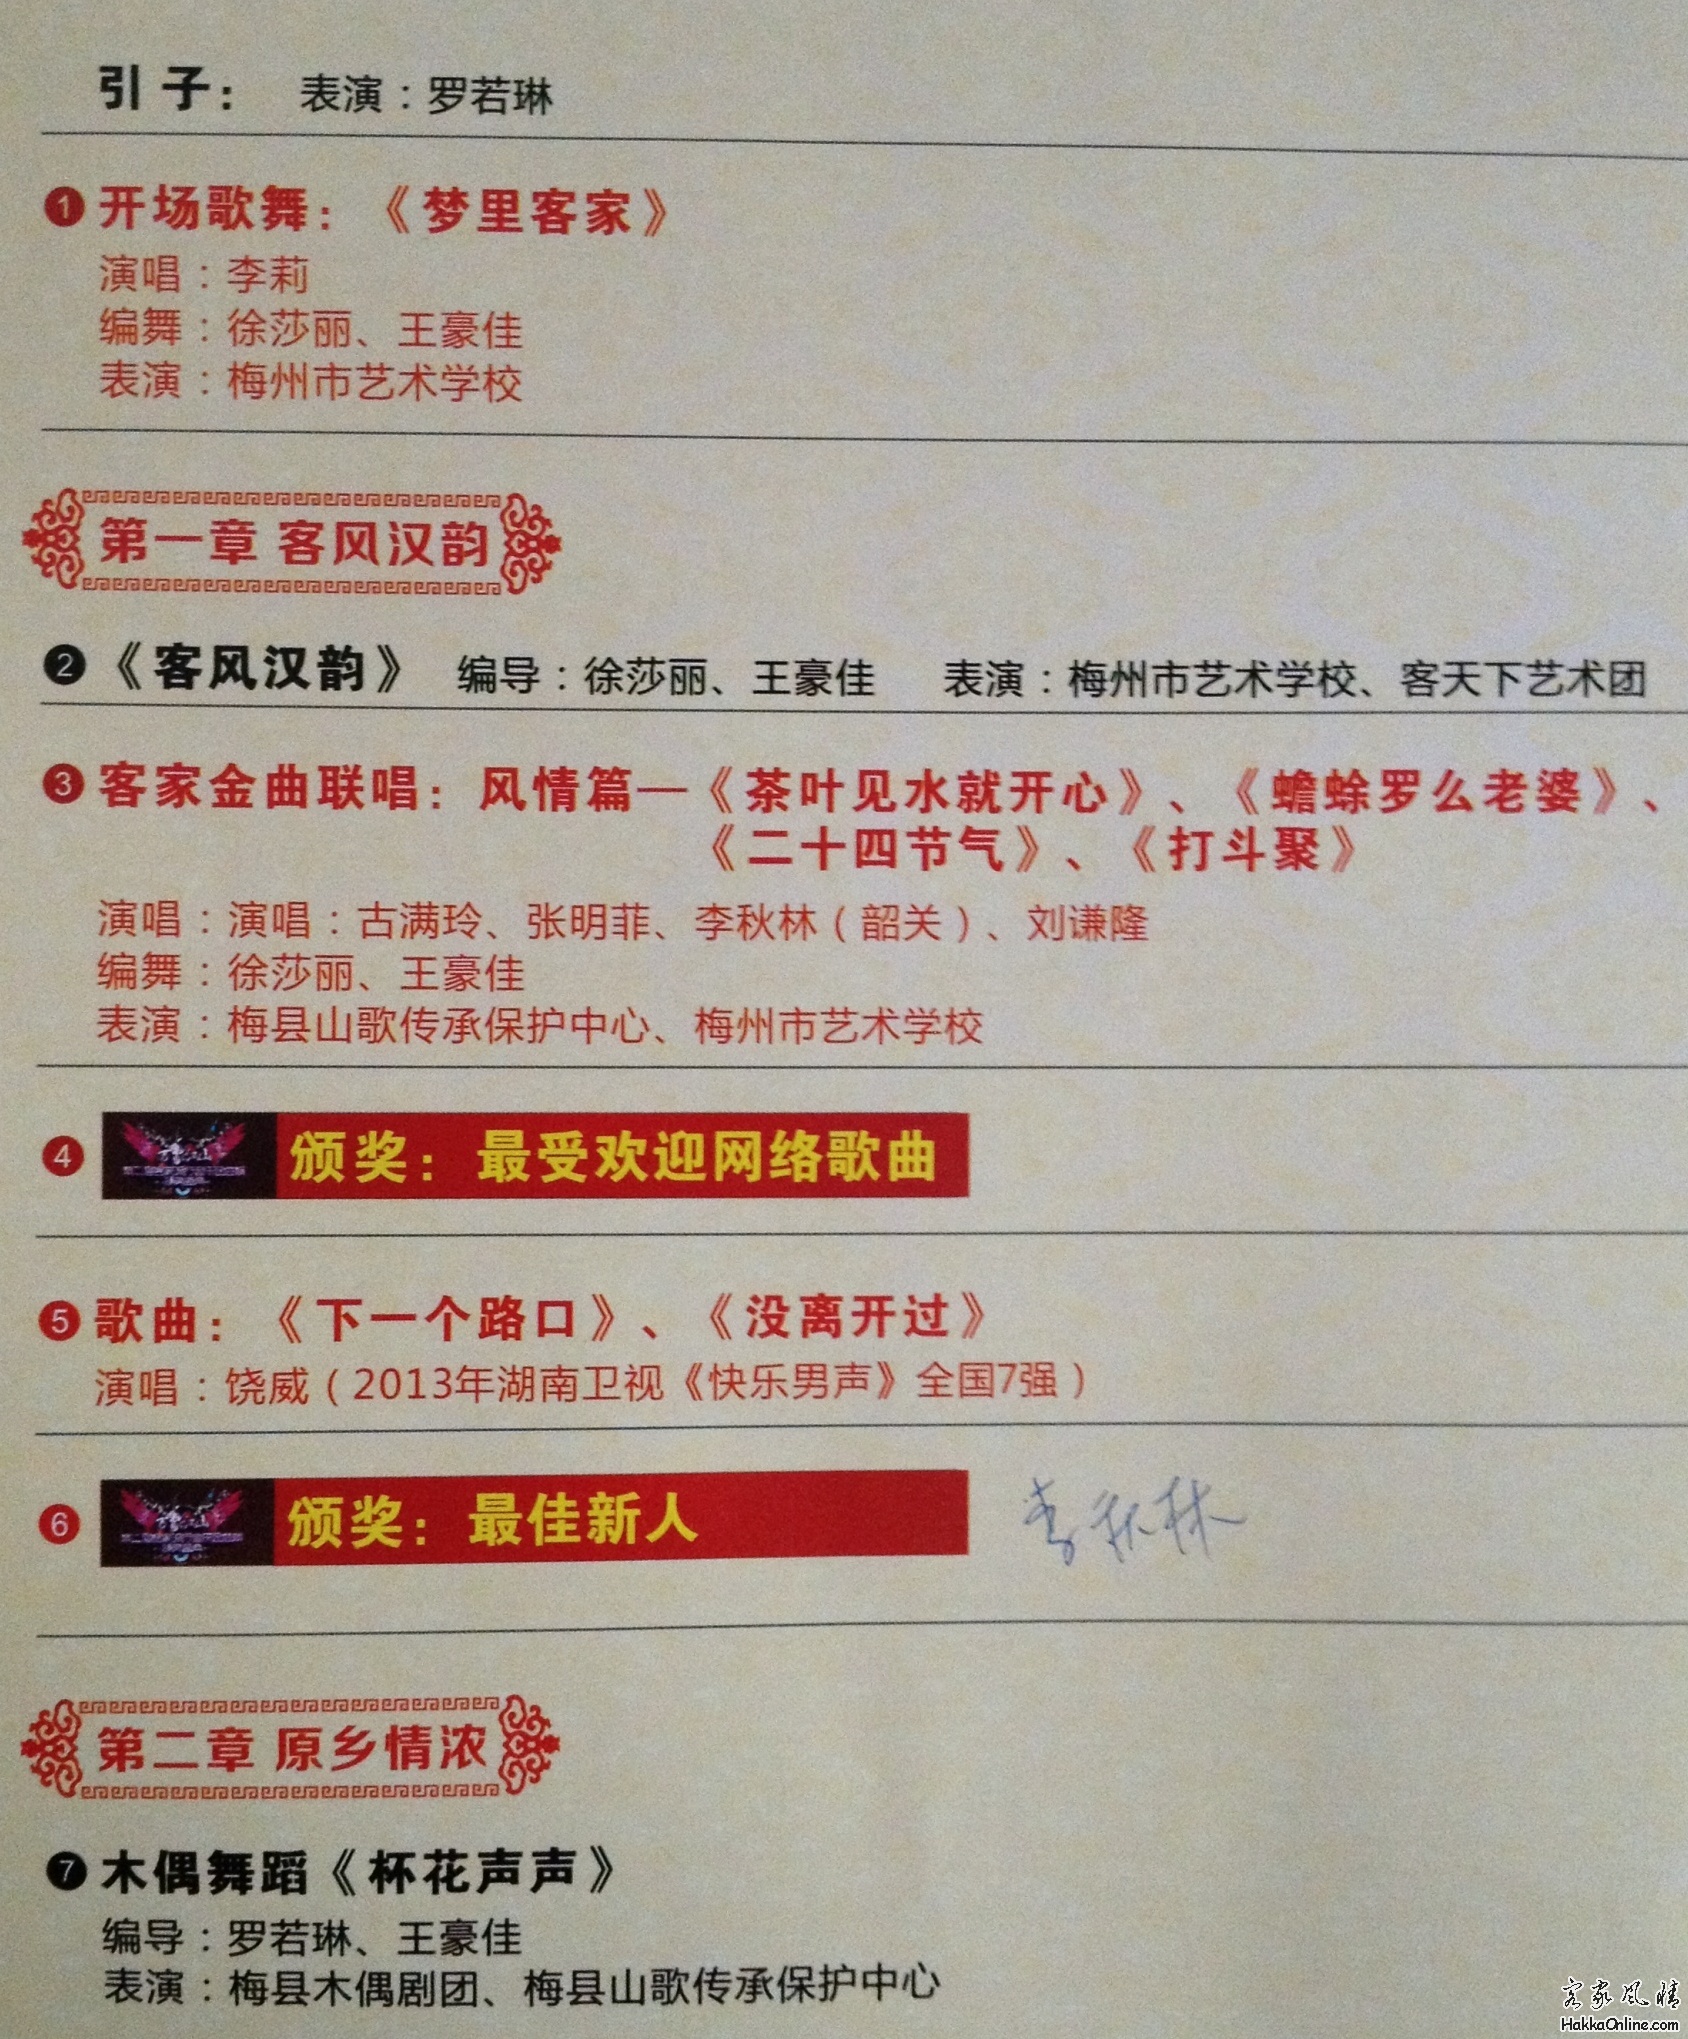 引 子： 表演：罗若琳
1 开场歌舞：《梦里客家》
演唱：李莉
编舞：徐莎丽、王豪佳
表演：梅州市艺术学校
第一章 客风汉韵
2 《客风汉韵》 编导：徐莎丽、王豪佳 表演：梅州市艺术学校、客天下艺术团
3 客家金曲联唱：风情篇—《茶叶见水就开心》、《蟾蜍罗么老婆》、
《二十四节气》、《打斗聚》
演唱：演唱：古满玲、张明菲、李秋林（韶关）、刘谦隆
编舞：徐莎丽、王豪佳
表演：梅县山歌传承保护中心、梅州市艺术学校
4 颁奖：最受欢迎网络歌曲
5 歌曲：《下一个路口》、《没离开过》
演唱：饶威（2013年湖南卫视《快乐男声》全国7强）
6 颁奖：最佳新人 李秋林
第二章 原乡情浓
7 木偶舞蹈《杯花声声》
编导：罗若琳、王豪佳
表演：梅县木偶剧团、梅县山歌传承保护中心
客家风情
HakkaOnline.com